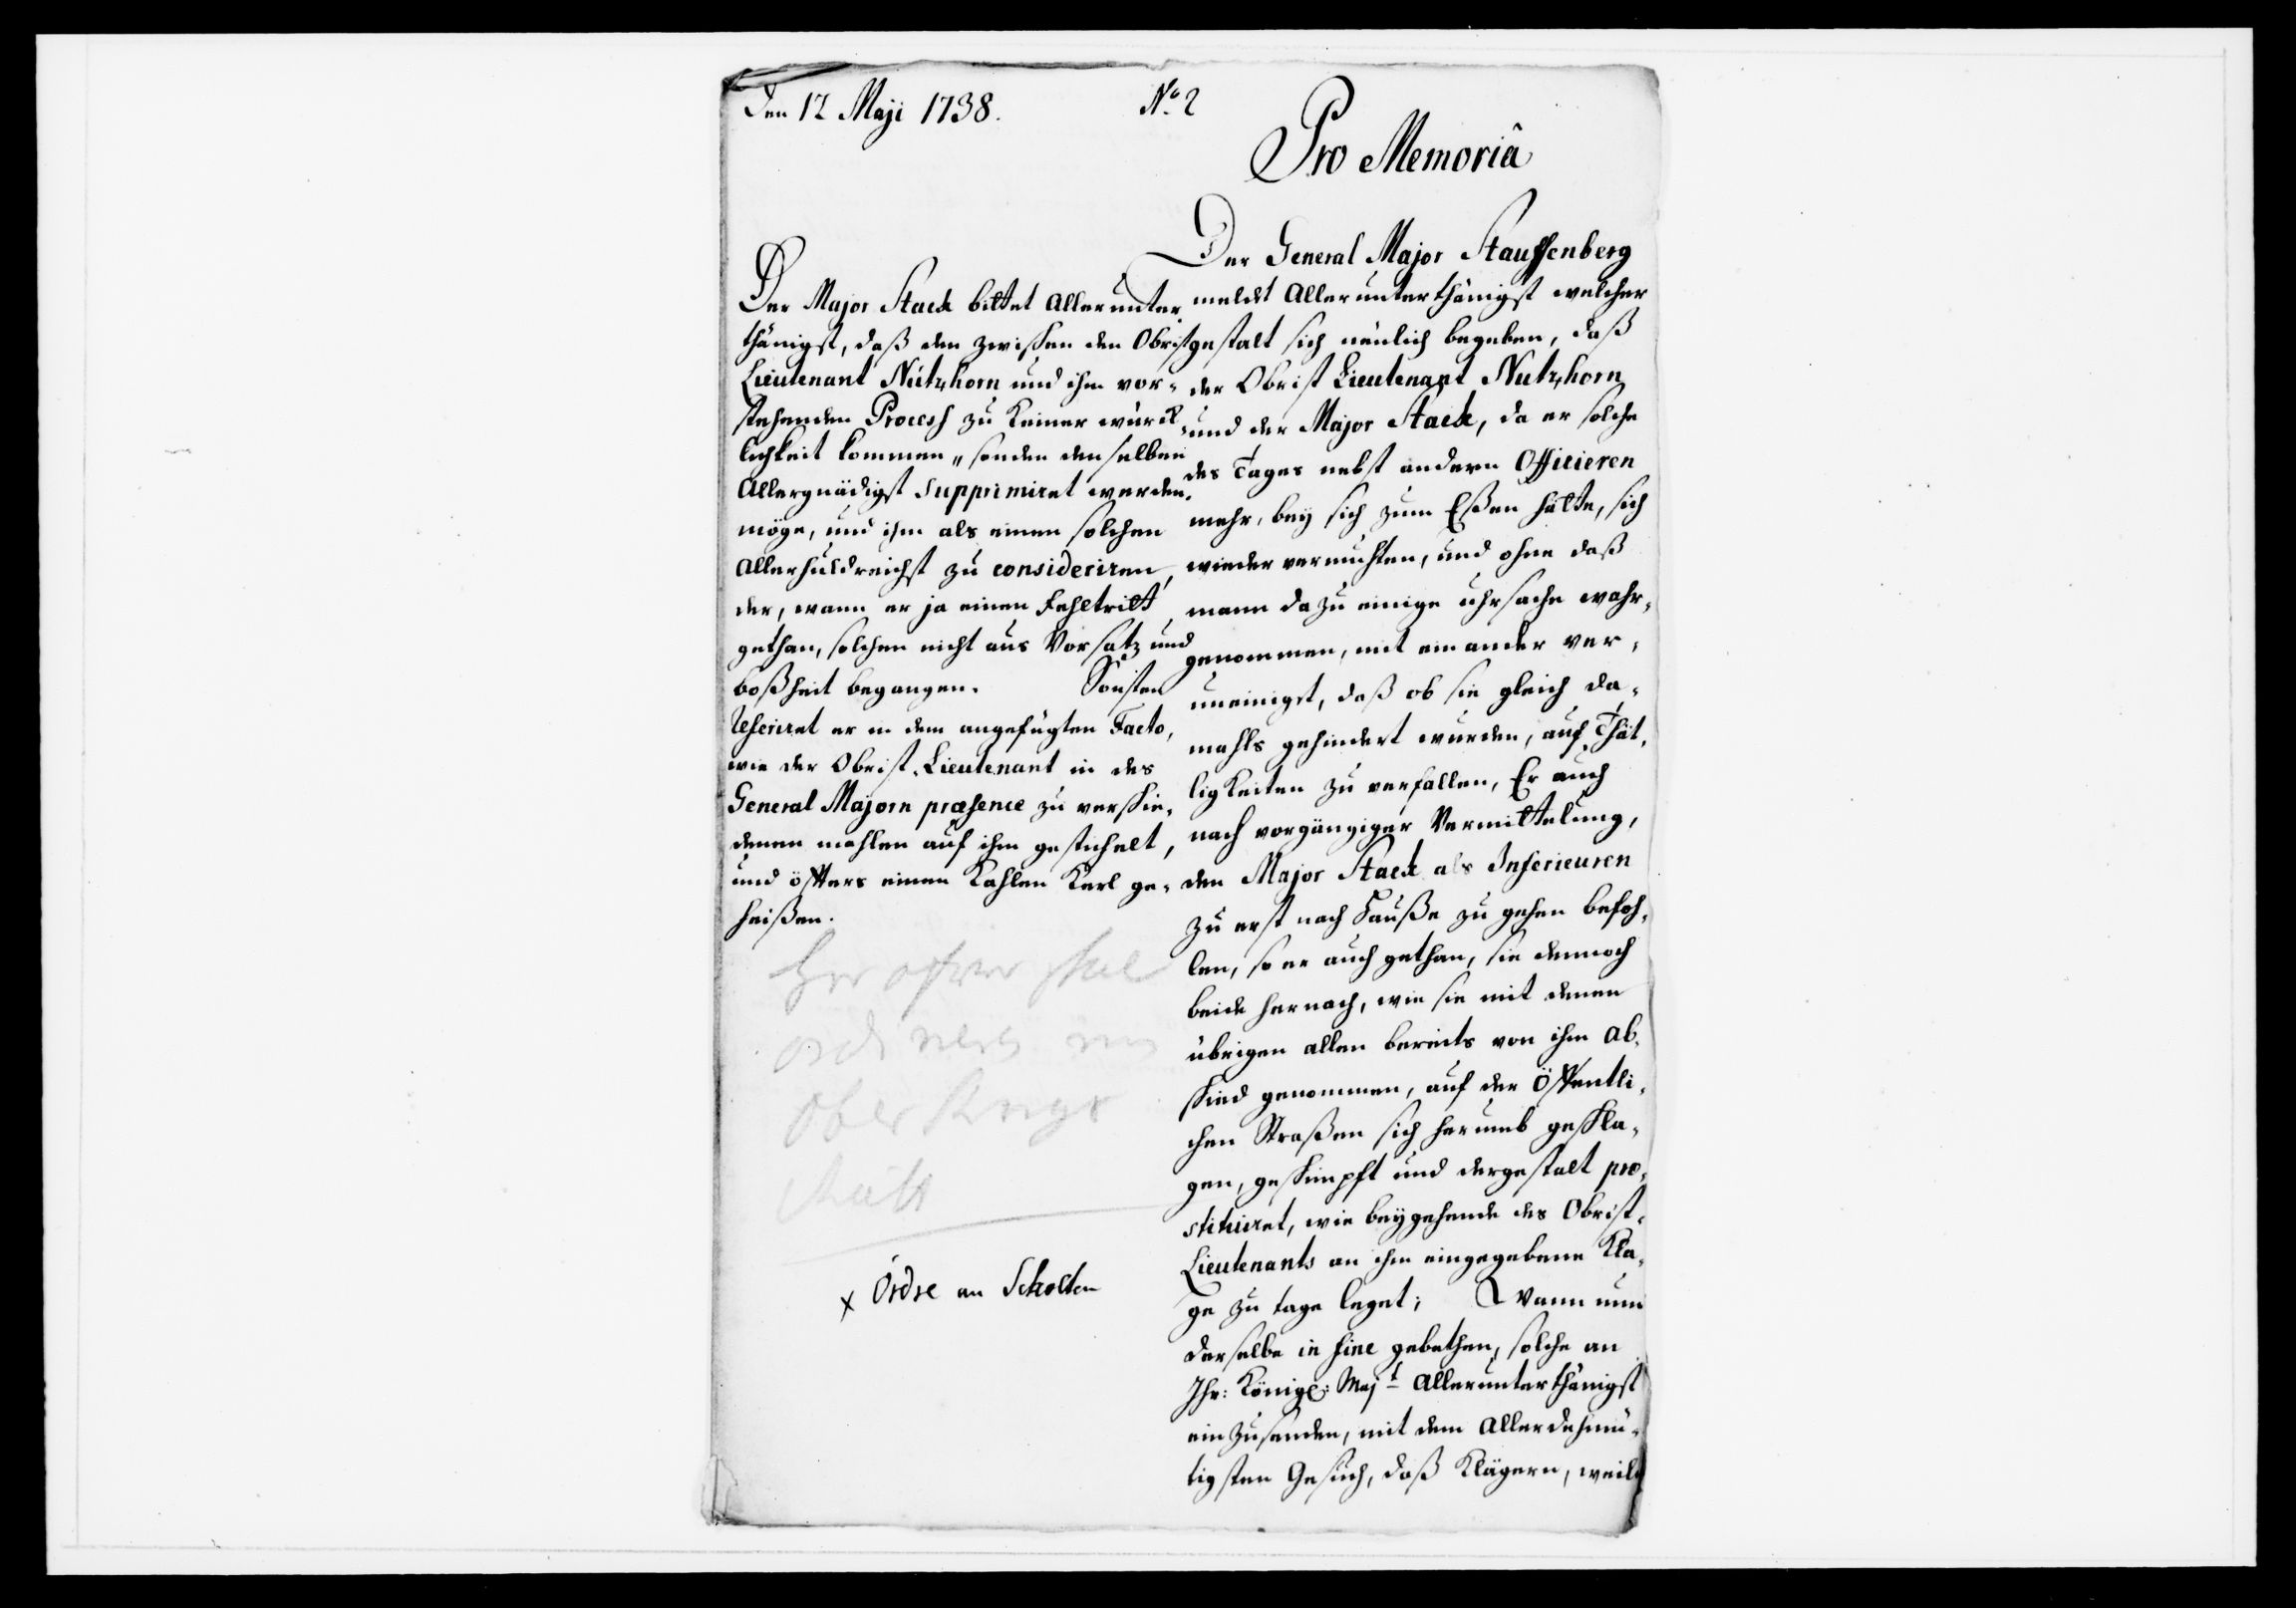 Den 12 Maji 1738.
No. 2
Pro Memoriâ
Der General Major Stauffenberg
meldt Allerunterthänigst welcher
gestalt sich neulich begeben, daß
der Obrist Lieutenant Nutzhorn
und der Major Stack, da er solche
des Tages nebst andern Officieren
mehr, bey sich zum Eßen hätte, sich
wieder vermuhten, und ohne daß
mann dazu einige uhrsache wahr-
genommen, mit ein ander ver-
uneiniget, daß ob sie gleich da-
mahls gehindert wurden, auf Thät-
ligkeiten zu verfallen, Er auch
nach vorgängiger Vermittelung,
den Major Stack als Inferieuren
zu erst nach Hauße zu gehen befoh-
len, so er auch gethan, sie dennoch
beide hernach, wie sie mit denen
übrigen allen bereits von ihm ab-
schied genommen, auf der Öffentli-
chen Straßen sich herumb geschla-
gen, geschimpft und dergestalt pro-
stituiret, wie beygehende des Obrist-
Lieutenants an ihm eingegebene Kla-
ge zu tage leget; Wann nun
derselbe in fine gebethen, solche an
Ihr: Königl: Majt Allerunterthänigst
ein zusenden, mit dem Allerdehmü-
tigsten Gesuch, daß Klägern, weil
Der Major Stack bittet Allerunter-
thänigst, daß den zwischen den Obrist
Lieutenant Nutzhorn und ihm vor-
stehenden Process zu keiner würck-
lichkeit kommen, sonden denselben
Allergnädigst supprimiret werden
möge, und ihm als einen solchen
Allerhuldreichst zu consideriren,
der, wann er ja einen Fehltritt
gethan, solchen nicht aus Vorsatz und
boßheit begangen. Sonsten
referiret er in dem angefügten Facto,
wie der Obrist-Lieutenant in des
General Majorn præsence zu verschie-
denen mahlen auf ihm gestichelt,
und öffters einen Kahlen Kerl ge-
heißen.
ober Krigs
x Ordre an Scholten